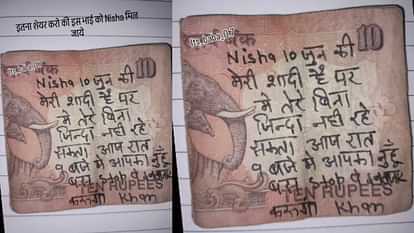 इतना शेयर करो की इस भाई को Nisha मिल
जाये
बैंक
10
Nisha 10 जून की
मेरी शादी है पर
में तेरे बिना
जिन्दा नही रहे
सकता आप रात
9 बजे में आपका
बस
TEN RUPEES
करूंगी Khan
बैंक
10
Nisha 10 जून की
मेरी शादी है पर
में तेरे बिना
जिन्दा नही रहे
सकता आप रात
9 बजे में आपका
बस
TEN RUPEES
करूंगी Khan